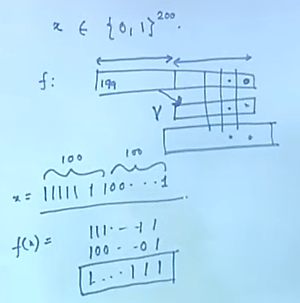 x ∈ {0,1}^200.
f:
199
γ
100 100
x = 111111100···1
f(x) = 111·--11
100--01
1...111